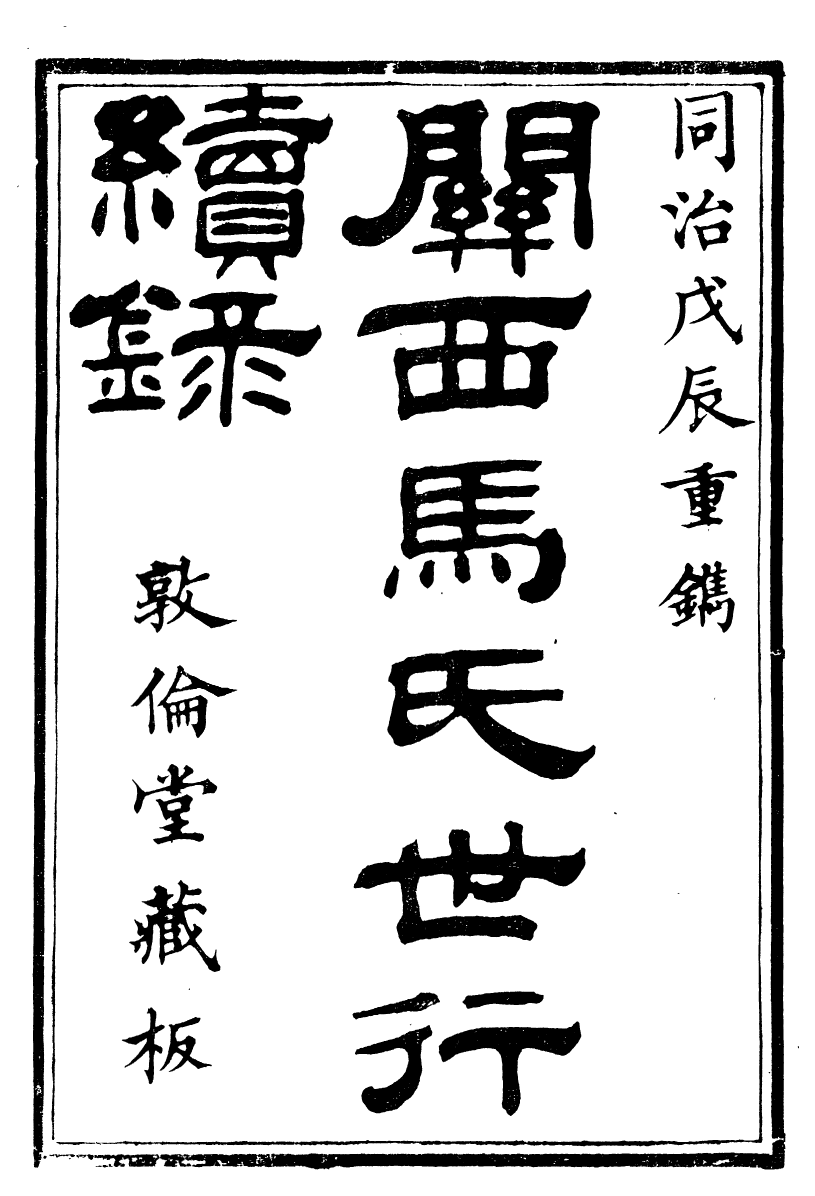 同治戊辰重鐫
關西馬氏世行
續錄
敦倫堂藏板